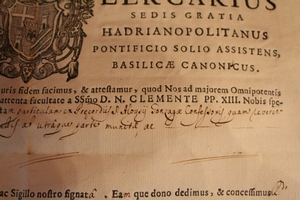 LERCARIUS
SEDIS GRATIA
HADRIANOPOLITANUS
PONTIFICIO SOLIO ASSISTENS,
BASILICÆ CANONICUS.
uris fidem facimus, & attestamur, quod Nos ad majorem Omnipotentis
attenta facultate a SSmo D. N. CLEMENTE PP. XIII. Nobis spe
particulam ex S. Gonzaga Confessoris quam
ac Sigillo nostro signatâ. Eam que dono dedimus, & concessimus